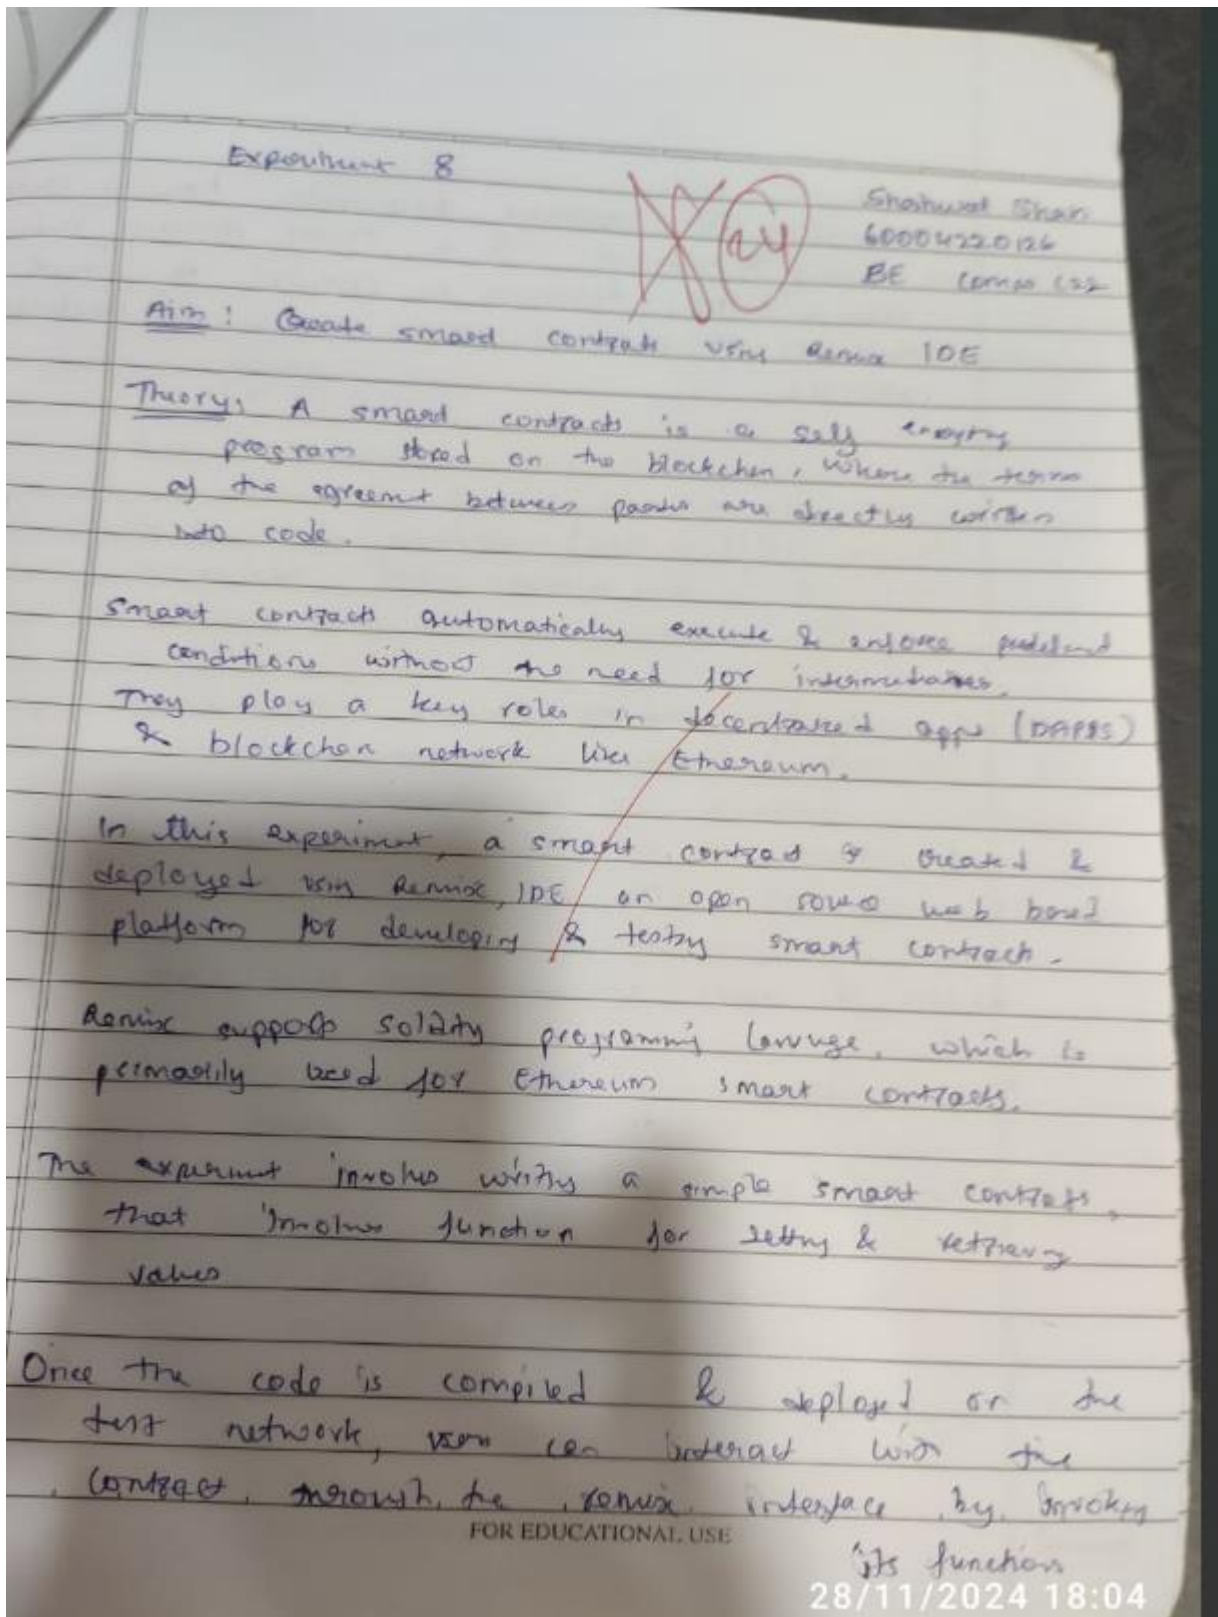 Experiment 8
24
Shashwat Shah
60004220126
BE Comps C22
Aim: Create smart contracts using Remix IDE
Theory: A smart contracts is a self executing
program stored on the blockchain, where the terms
of the agreement between parties are directly written
into code.
Smart contracts automatically execute & enforce predefined
conditions without the need for intermediaries.
They play a key roles in decentralized apps (DAPPS)
& blockchain network like Ethereum.
In this experiment, a smart contract is created &
deployed using Remix, IDE an open source web based
platform for developing & testing smart contracts.
Remix supports solidity programming language, which is
primarily used for Ethereum smart contracts.
The experiment involves writing a simple smart contracts,
that involves function for setting & retrieving
values
Once the code is compiled & deployed on the
test network, users can interact with the
contract through the remix interface by invoking
its function
FOR EDUCATIONAL USE
28/11/2024 18:04